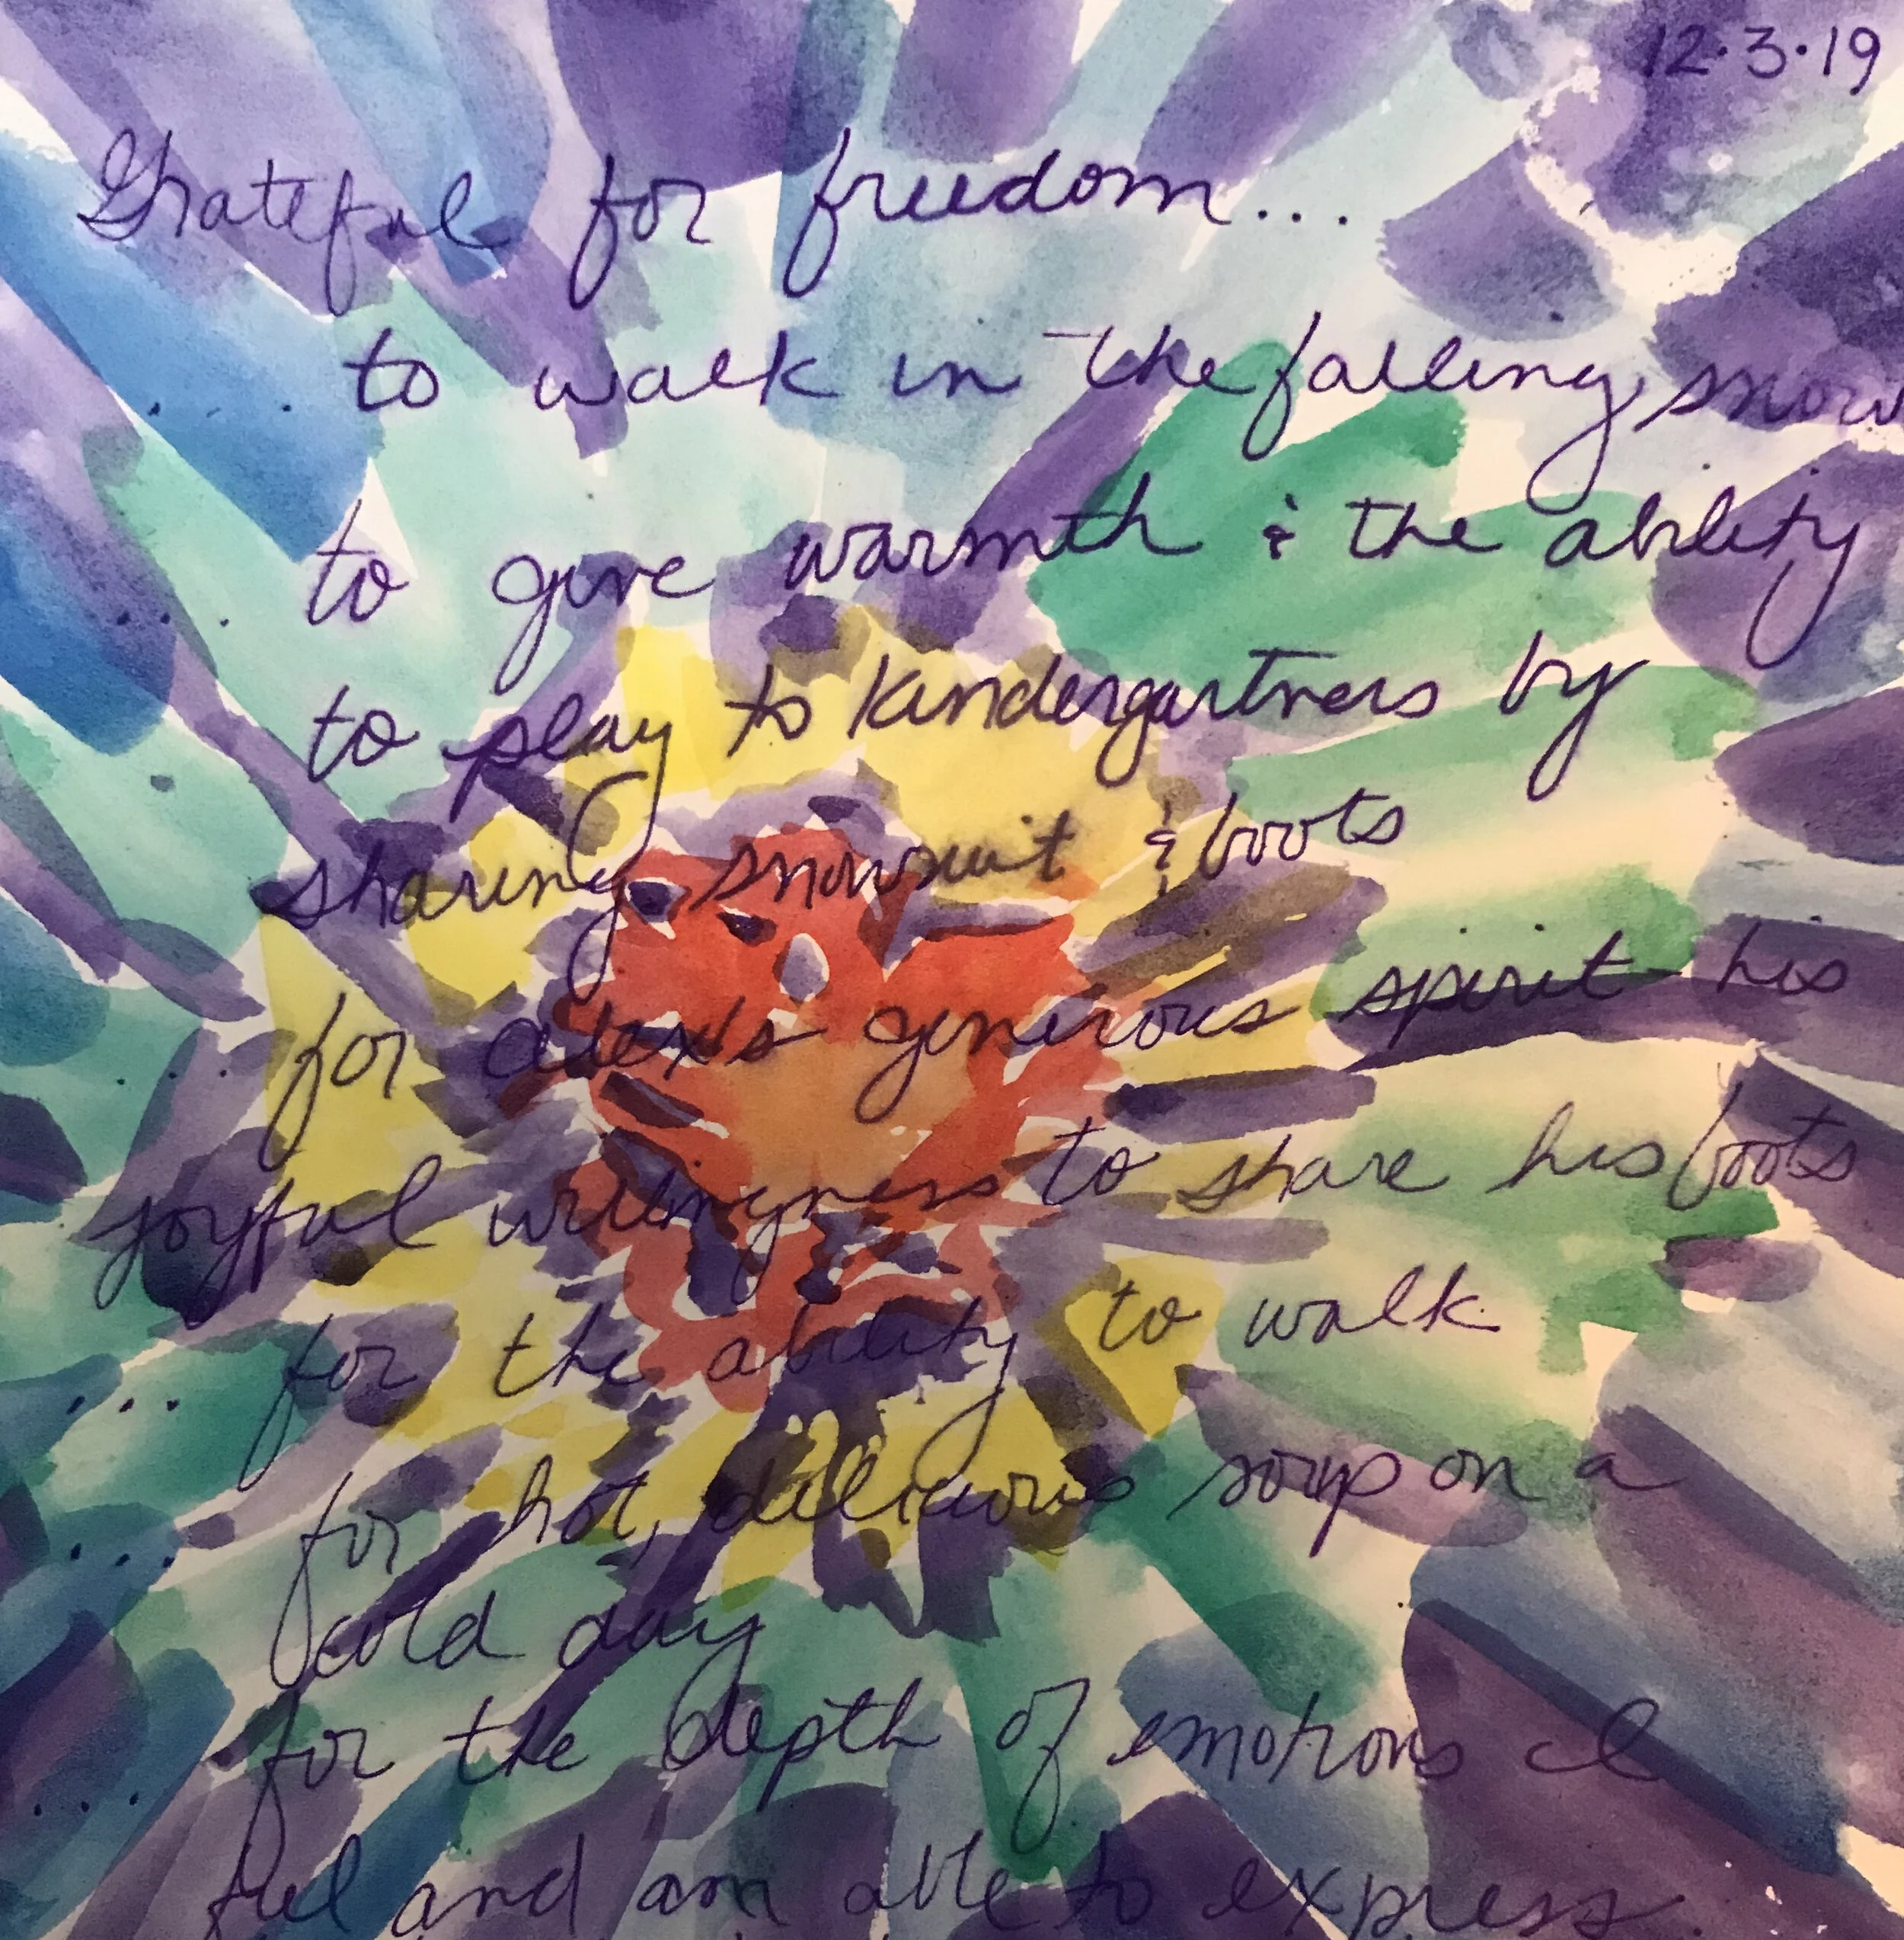 12.3.19
Grateful for freedom...
.... to walk in the falling snow
.... to give warmth & the ability
to play to kindergartners by
sharing snowsuit & boots
.... for alex's generous spirit his
joyful willingness to share his boots
.... for the ability to walk
.... for hot, delicious soup on a
cold day
.... for the depth of emotions I
feel and am able to express.